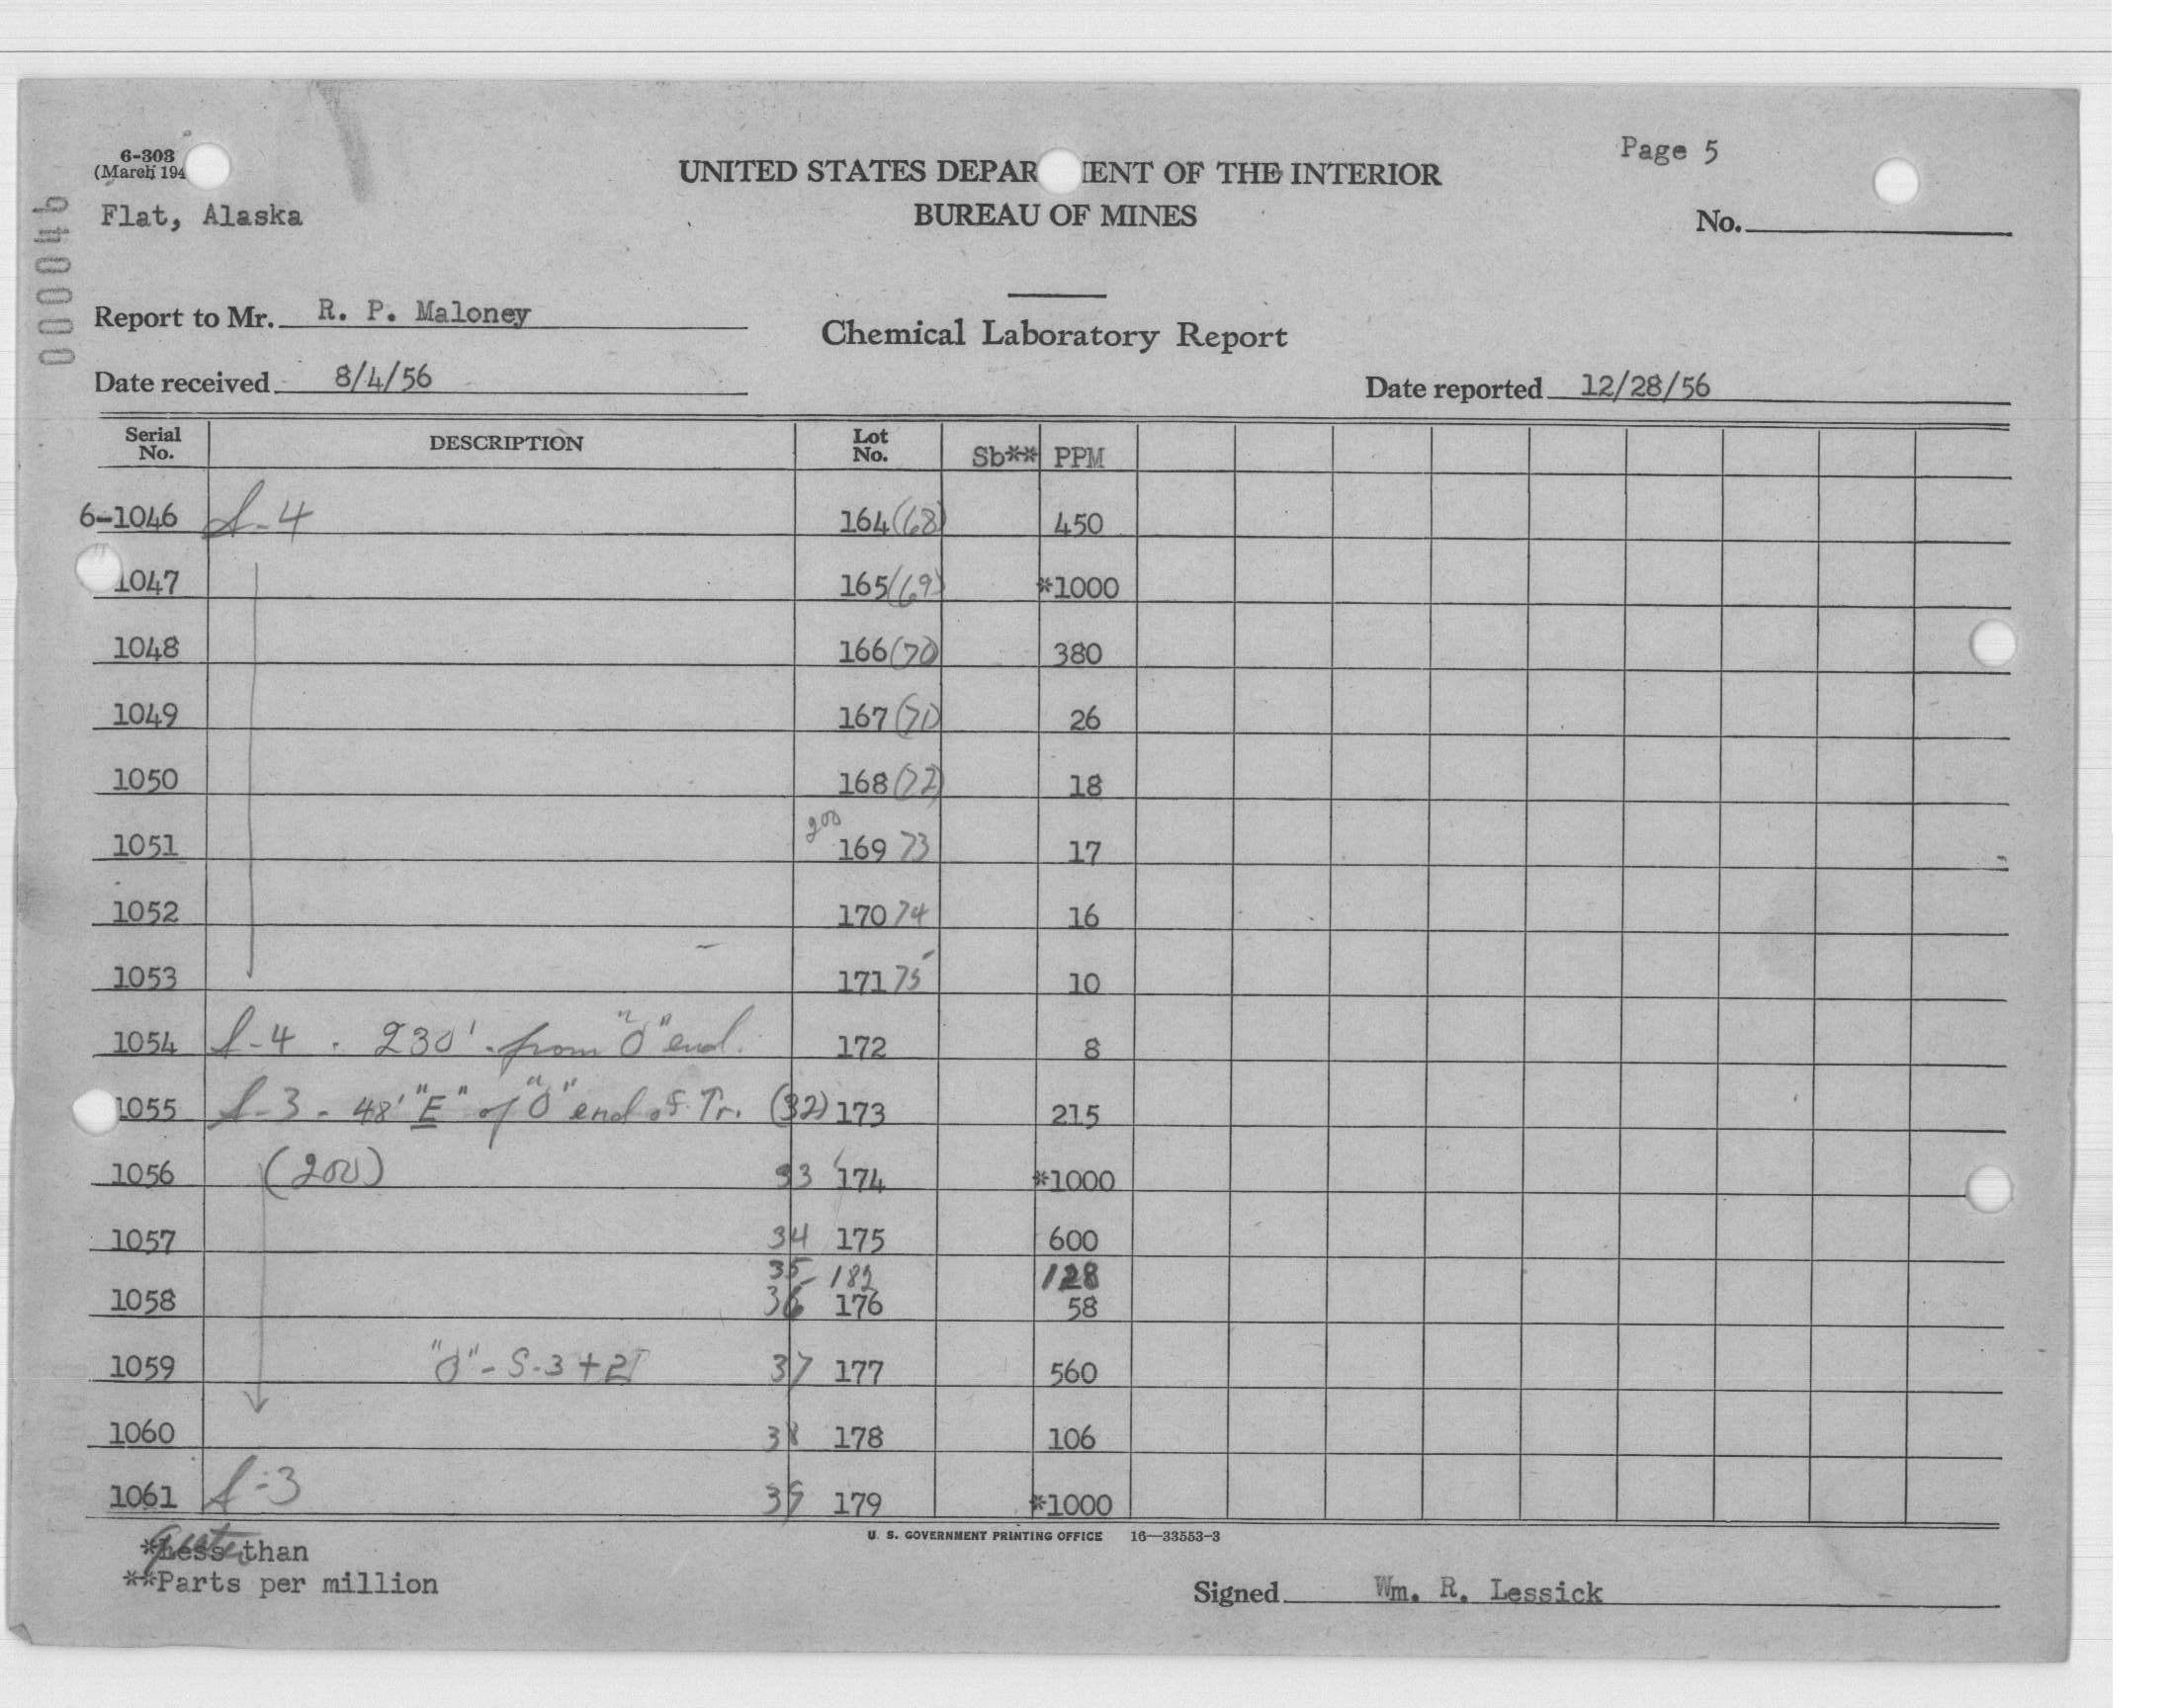 6-303
(March 194
Page 5
UNITED STATES DEPAR MENT OF THE INTERIOR
Flat, Alaska
BUREAU OF MINES
No.
940000
Report to Mr. R. P. Maloney
Chemical Laboratory Report
Date received 8/4/56
Date reported 12/28/56
Serial No. DESCRIPTION Lot No. Sb** PPM
6-1046 S-4 164 (68) 450
1047 165 (69) *1000
1048 166 (70) 380
1049 167 (71) 26
1050 168 (72) 18
200
1051 169 73 17
1052 170 74 16
1053 171 75 10
1054 S-4 - 230' from "O" end. 172 8
1055 S-3 - 48' "E" of "O" end of Tr. (32) 173 215
1056 (200) 33 174 *1000
1057 34 175 600
35 182 128
1058 36 176 58
1059 "O" - S-3 + 21 37 177 560
1060 38 178 106
1061 S-3 39 179 *1000
U. S. GOVERNMENT PRINTING OFFICE 16—33553-3
*Less than
greater
**Parts per million
Signed Wm. R. Lessick